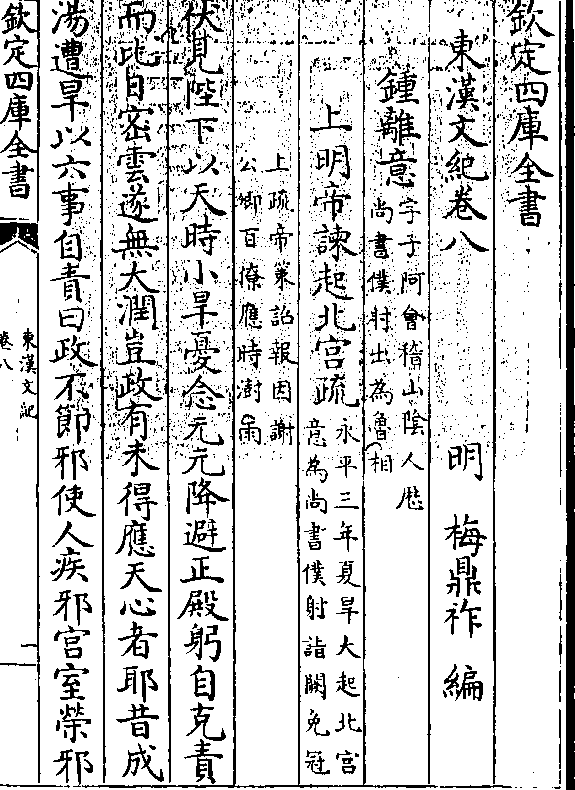 欽定四庫全書
東漢文紀卷八
明 梅鼎祚 編
鍾離意字子阿會稽山陰人歴
尚書僕射出為魯相
上明帝諫起北宫疏永平三年夏旱大起北宫
意為尚書僕射詣闕免冠
上疏帝策詔報因謝
公卿百僚應時澍雨
伏見陛下以天時小旱憂念元元降避正殿躬自克責
而比日密雲遂無大潤豈政有未得應天心者耶昔成
湯遭旱以六事自責曰政不節邪使人疾邪宫室榮邪
欽定四庫全書
東漢文紀
卷八
一